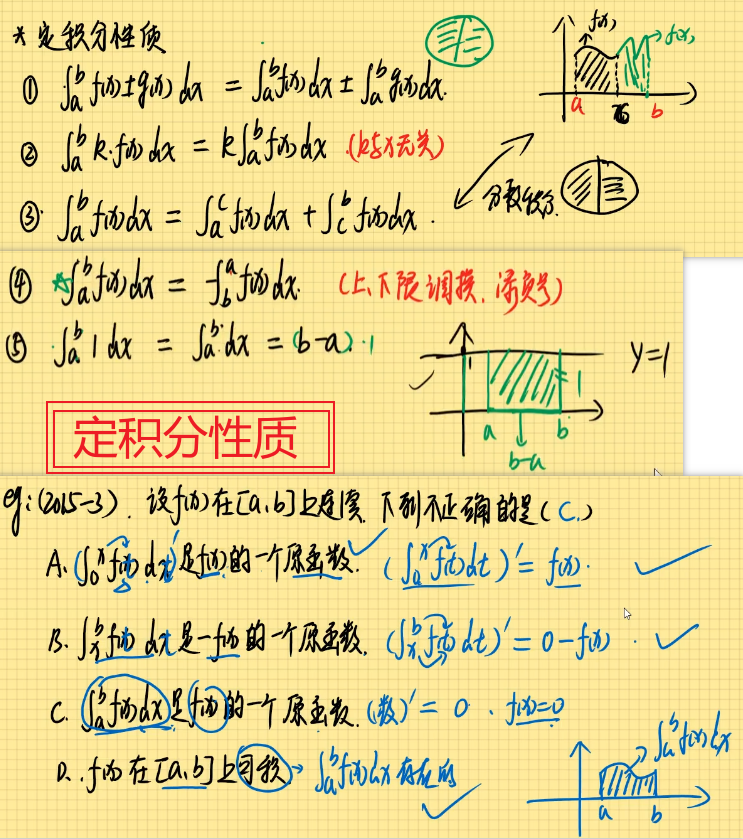 * 定积分性质
① ∫_a^b f(x)±g(x) dx = ∫_a^b f(x)dx ± ∫_a^b g(x)dx.
f(x) f(x)
a b
② ∫_a^b k·f(x)dx = k∫_a^b f(x)dx (k与x无关)
③ ∫_a^b f(x)dx = ∫_a^c f(x)dx + ∫_c^b f(x)dx.
分段积分.
④ ☆∫_a^b f(x)dx = -∫_b^a f(x)dx. (上、下限调换, 添负号)
⑤ ∫_a^b 1 dx = ∫_a^b dx = (b-a)·1
1 1 y=1
a b
b-a
定积分性质
eg:(2015-3). 设f(x)在[a,b]上连续, 下列不正确的是(C.)
A. (∫_0^x f(t)dt)' 是f(x)的一个原函数. (∫_a^x f(t)dt)' = f(x).
B. ∫_x^b f(t)dt是-f(x)的一个原函数. (∫_x^b f(t)dt)' = 0-f(x).
C. ∫_a^b f(x)dx是f(x)的一个原函数. (数)' = 0. f(x)=0
D. f(x)在[a,b]上可积 → ∫_a^b f(x)dx存在的
∫_a^b f(x)dx
a b